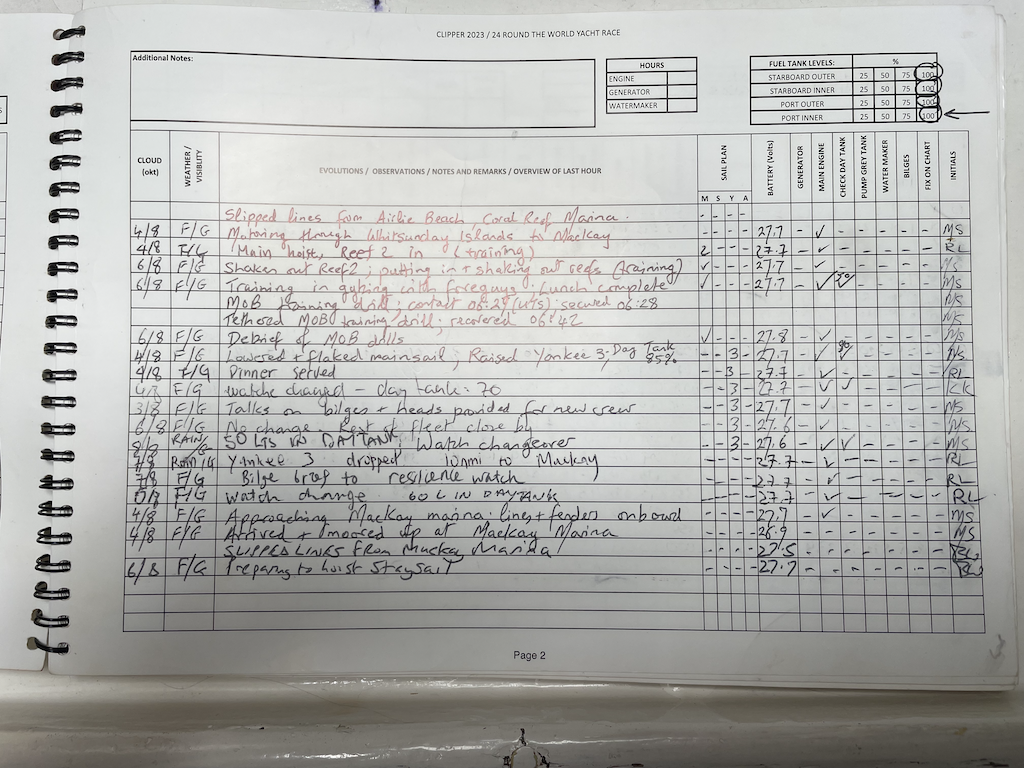 CLIPPER 2023 / 24 ROUND THE WORLD YACHT RACE
Additional Notes:
HOURS
ENGINE
GENERATOR
WATERMAKER
FUEL TANK LEVELS: %
STARBOARD OUTER 25 50 75 100
STARBOARD INNER 25 50 75 100
PORT OUTER 25 50 75 100
PORT INNER 25 50 75 100
CLOUD (okt) WEATHER / VISIBLITY EVOLUTIONS / OBSERVATIONS / NOTES AND REMARKS / OVERVIEW OF LAST HOUR SAIL PLAN BATTERY (Volts) GENERATOR MAIN ENGINE CHECK DAY TANK PUMP GREY TANK WATER MAKER BILGES FIX ON CHART INITIALS
M S Y A
Slipped lines from Airlie Beach, Coral Reef Marina. - - - -
4/8 F/G Motoring through Whitsunday Islands to Mackay - - - - 27.7 - ✓ - - - - - MS
4/8 F/G (Main hoist, Reef 2 in (training) 2 - - - 27.7 - ✓ - - - - - RL
6/8 F/G Shaken out Reef 2; putting in + shaking out reefs (training) ✓ - - - 27.7 - ✓ - - - - - MS
6/8 F/G Training in gybing with foreguys; Lunch complete ✓ - - - 27.7 - ✓ ✓ - - - - MS
MOB training drill; contact 06:27 (UTC); secured 06:28
Tethered MOB training drill; recovered 06:42
6/8 F/G Debrief of MOB drills ✓ - - - 27.8 - ✓ - - - - - MS
4/8 F/G Lowered + flaked mainsail; Raised Yankee 3; Day Tank 85% - - 3 - 27.7 - ✓ ✓ - - - - MS
4/8 F/G Dinner served - - 3 - 27.7 - ✓ - - - - - RL
F/G watche changed - day tank: 70 - - 3 - 27.7 - ✓ ✓ - - - -
3/8 F/G Talks on bilges + heads provided for new crew - - 3 - 27.7 - ✓ - - - - - MS
6/8 F/G No change - Rest of fleet close by - - 3 - 27.6 - ✓ - - - - - MS
RAIN/G 50 LTS IN DAY TANK; Watch changeover - - 3 - 27.6 - ✓ ✓ - - - - MS
Rain/G Yankee 3 dropped 10nmi to Mackay - - - - 27.7 - ✓ - - - - - RL
7/8 F/G Bilge brief to resilience watch - - - - 27.7 - ✓ - - - - - RL
F/G watch change 60 L IN DAY TANK - - - - 27.7 - ✓ - - - - - RL
4/8 F/G Approaching Mackay marina; lines + fenders onboard - - - - 27.7 - ✓ - - - - - MS
4/8 F/G Arrived + moored up at Mackay Marina - - - - 26.9 - - - - - - - MS
SLIPPED LINES FROM Mackay Marina - - - - 27.5 - - - - - - -
6/8 F/G Preparing to hoist Staysail - - - - 27.7 - - - - - - -
Page 2